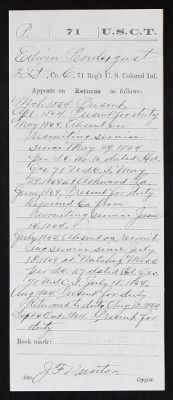 P. 71 U.S.C.T.
Edwin Pendergast
2 Lt., Co. C, 71 Reg't U. S. Colored Inf.
Appears on Returns as follows:
Mch 1864. Present.
Apl 1864. Present for duty
May 1864. Absent on
Recruiting service
since May 29 1864
per S.O. No 16 dated Hd.
Qrs 71 U.S.C.I. May
29, 1864 at Ashwood La.
June 1864. Present for duty
Rejoined Co. from
Recruiting service June
14, 1864.
July 1864. Absent on recruit
ing service since July
18, 1864 at Natchez Miss
per S.O. 27 dated Hd Qrs
71 U.S.C.I. July 18, 1864.
Aug 1864. Present for duty
Returned to duty Aug 10, 1864
Sept & Oct 1864. Present for
duty
Book mark:
J. F. Newton
Copyist.